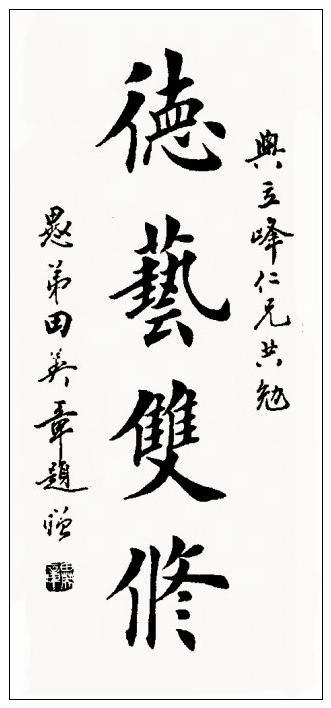 與立峰仁兄共勉
德藝雙修
愚弟田英章題贈